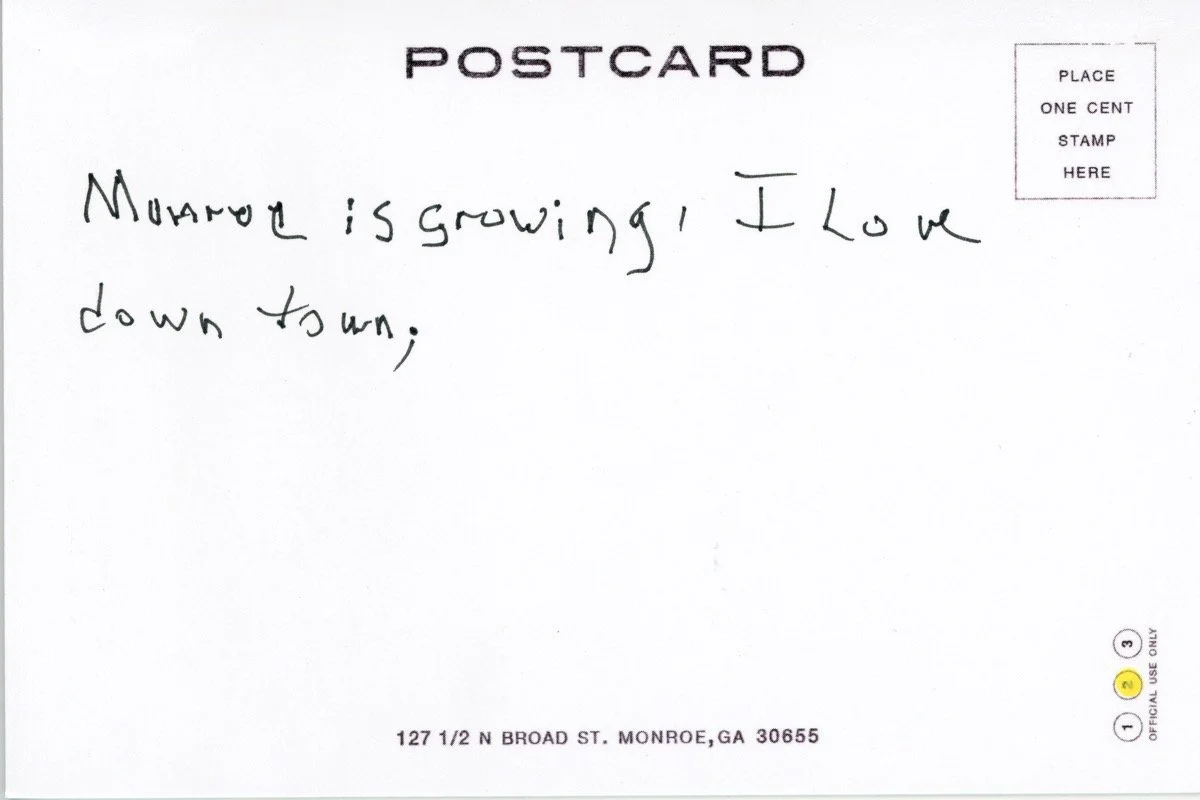 POSTCARD
PLACE
ONE CENT
STAMP
HERE
Monroe is growing, I Love
down town;
3
2
1
OFFICIAL USE ONLY
127 1/2 N BROAD ST. MONROE,GA 30655